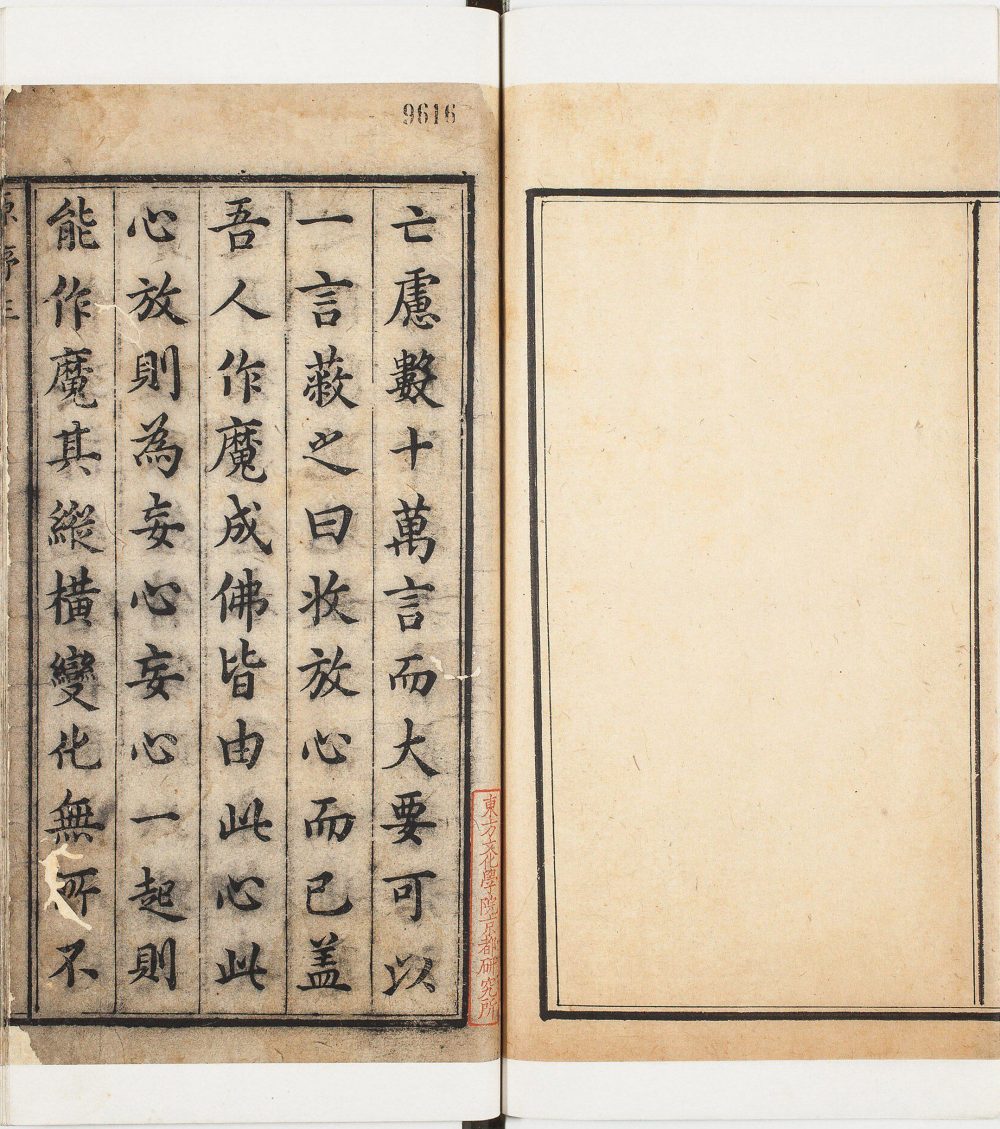 9616
亡慮數十萬言而大要可以
一言蔽之曰收放心而已盖
吾人作魔成佛皆由此心此
心放則為妄心妄心一起則
能作魔其縱橫變化無所不
序三
東方文化學院京都研究所